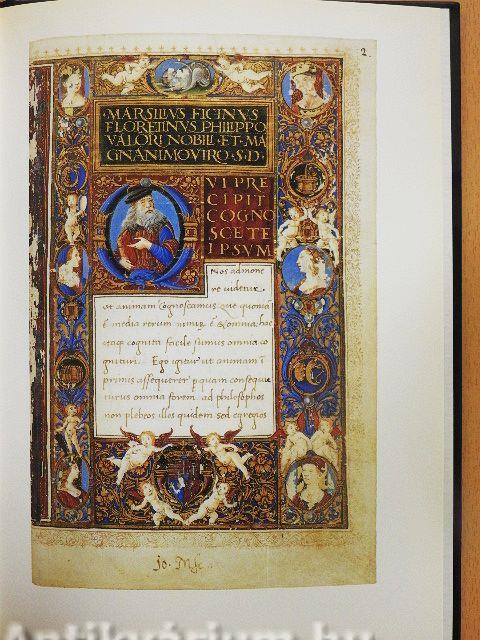 2.
MARSILIVS FICINVS
FLORETINVS PHILIPPO
VALORI NOBILI · ET · MA
GNANIMO VIRO · S · D ·
Q
VI PRE
CIPIT
COGNO
SCE TE
IPSVM
Nos admone
re videtur
ut animam cognoscamus. Que quoniā
ē media rerum
cognita facile sumus omnia co
gnituri. Ego igitur ut animam ī
primis assequerer p quam conseque
turus omnia forem ad philosophos
non plebeos illos quidem sed egregios
jo. M
Antikvárium.hu